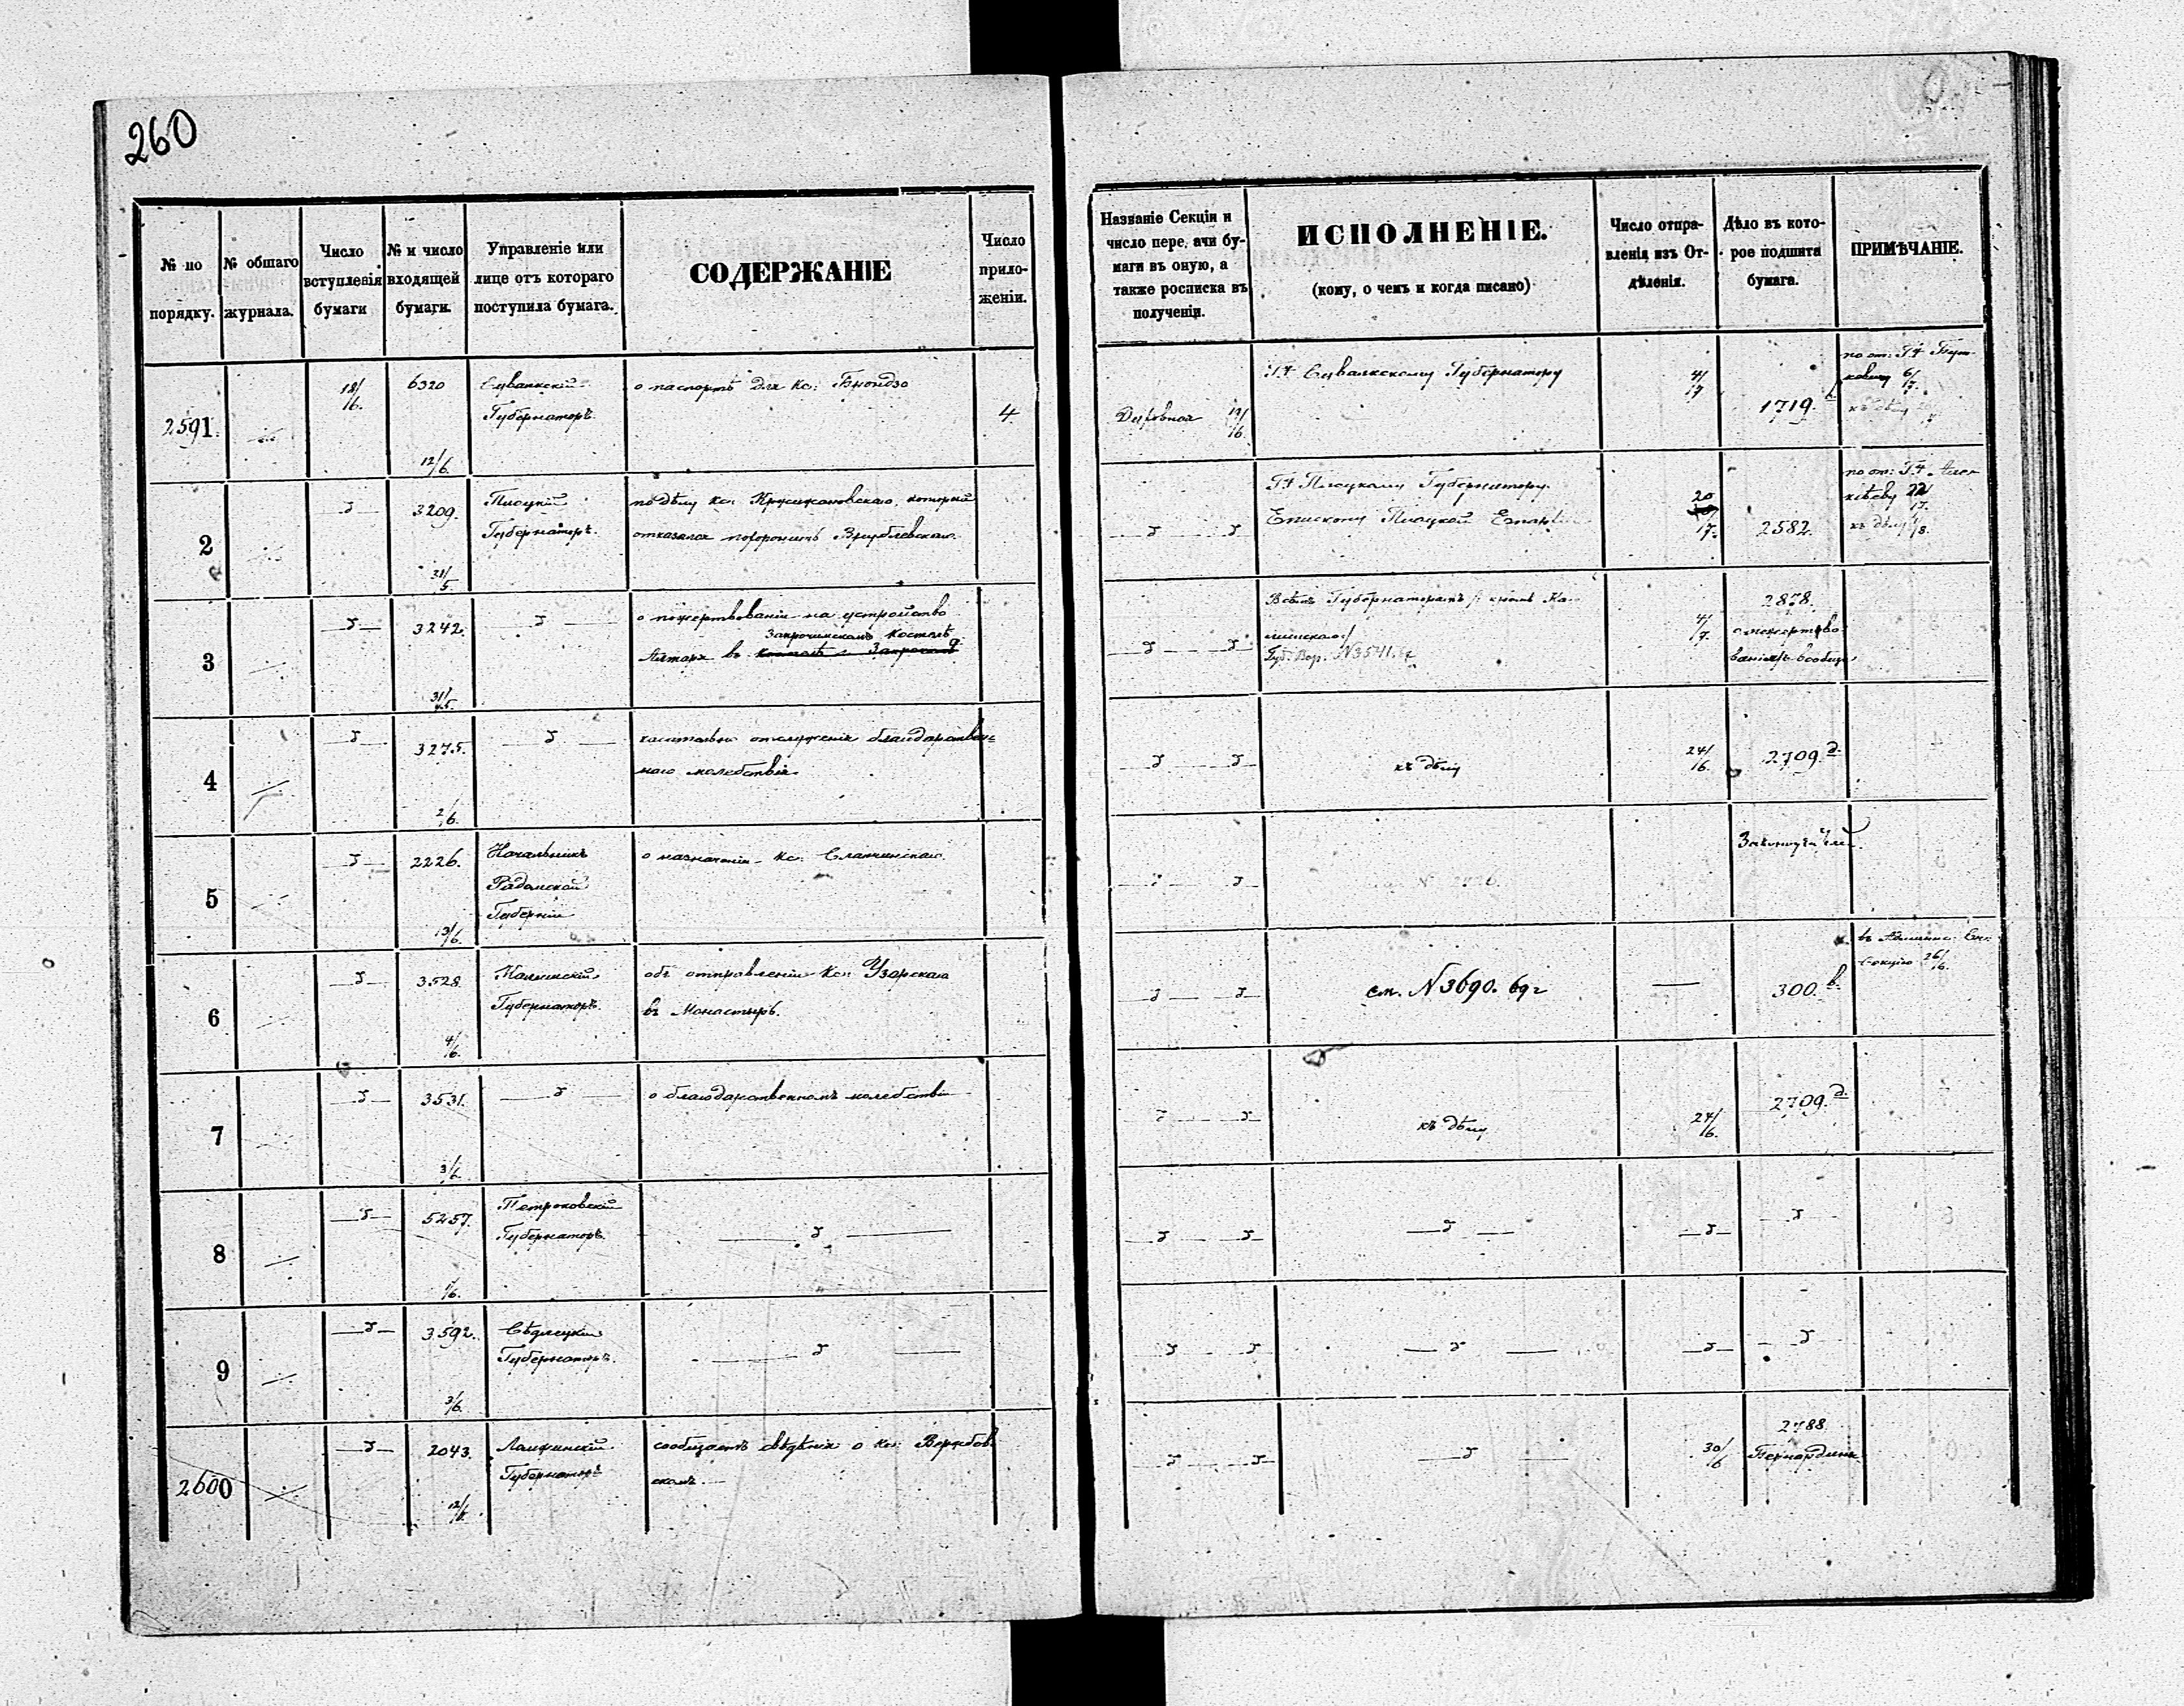 260
№ по порядку.
№ общаго журнала.
Число вступленія бумаги
№ и число входящей бумаги.
Управленіе или лице отъ котораго поступила бумага.
СОДЕРЖАНІЕ
Число прило-женіи.
Названіе Секціи и число пере. ачи бу-маги въ оную, а также росписка въ полученіи.
ИСПОЛНЕНІЕ.
(кому, о чемъ и когда писано)
Число отпра-вленія изъ От-дѣленія.
Дѣло въ кото-рое подшита бумага.
ПРИМѢЧАНІЕ.
2591.
18/16.
6320
12/6.
Сувалкскій
Губернаторъ.
о паспортѣ для Кс:
4
Духовная
Г.+ Сувалкскому Губернатору
4/17
1719.
по от: Г.+
6/17.
2
3209.
31/5.
Плоцкій
Губернаторъ.
по дѣлу Кс: Кржижановскаго, который
отказался похоронить Врублевскаго.
Г.+ Плоцкому Губернатору.
Епископу Плоцкой Епархіи
20
17.
2582.
по от: Г.+
къ дѣлу
3
3242.
31/5.
о пожертвованіи на устройство
Закрочимскомъ костелѣ
Алтаря въ
Всѣмъ Губернаторамъ /: кромѣ Ка-
лишскаго:/
Губ. Вар. № 3541.
4/7.
2878.
о пожертво-
ваніяхъ вообще
4
3275.
2/6.
касательно отслуженія благодарствен-
наго молебствія
къ дѣлу
24/16.
2709. д.
5
2226.
13/6.
Начальникъ
Радомской
Губерніи
о назначеніи Кс:
6
3528.
4/6.
Калишскій
Губернаторъ.
объ отправленіи Кс: Узарскаго
въ Монастырь.
см. № 3690. 69 г
300. в.
26/16.
7
3531.
3/6.
о благодарственномъ молебствіи
къ дѣлу
24/6.
2709. д.
8
5257.
1/6.
Петроковскій
Губернаторъ.
9
3592.
3/6.
Сѣдлецкій
Губернаторъ.
2600
2043.
12/6.
Ломжинскій
Губернаторъ
сообщаетъ свѣдѣнія о Кс: Вержбов-
скомъ.
30/6
2788